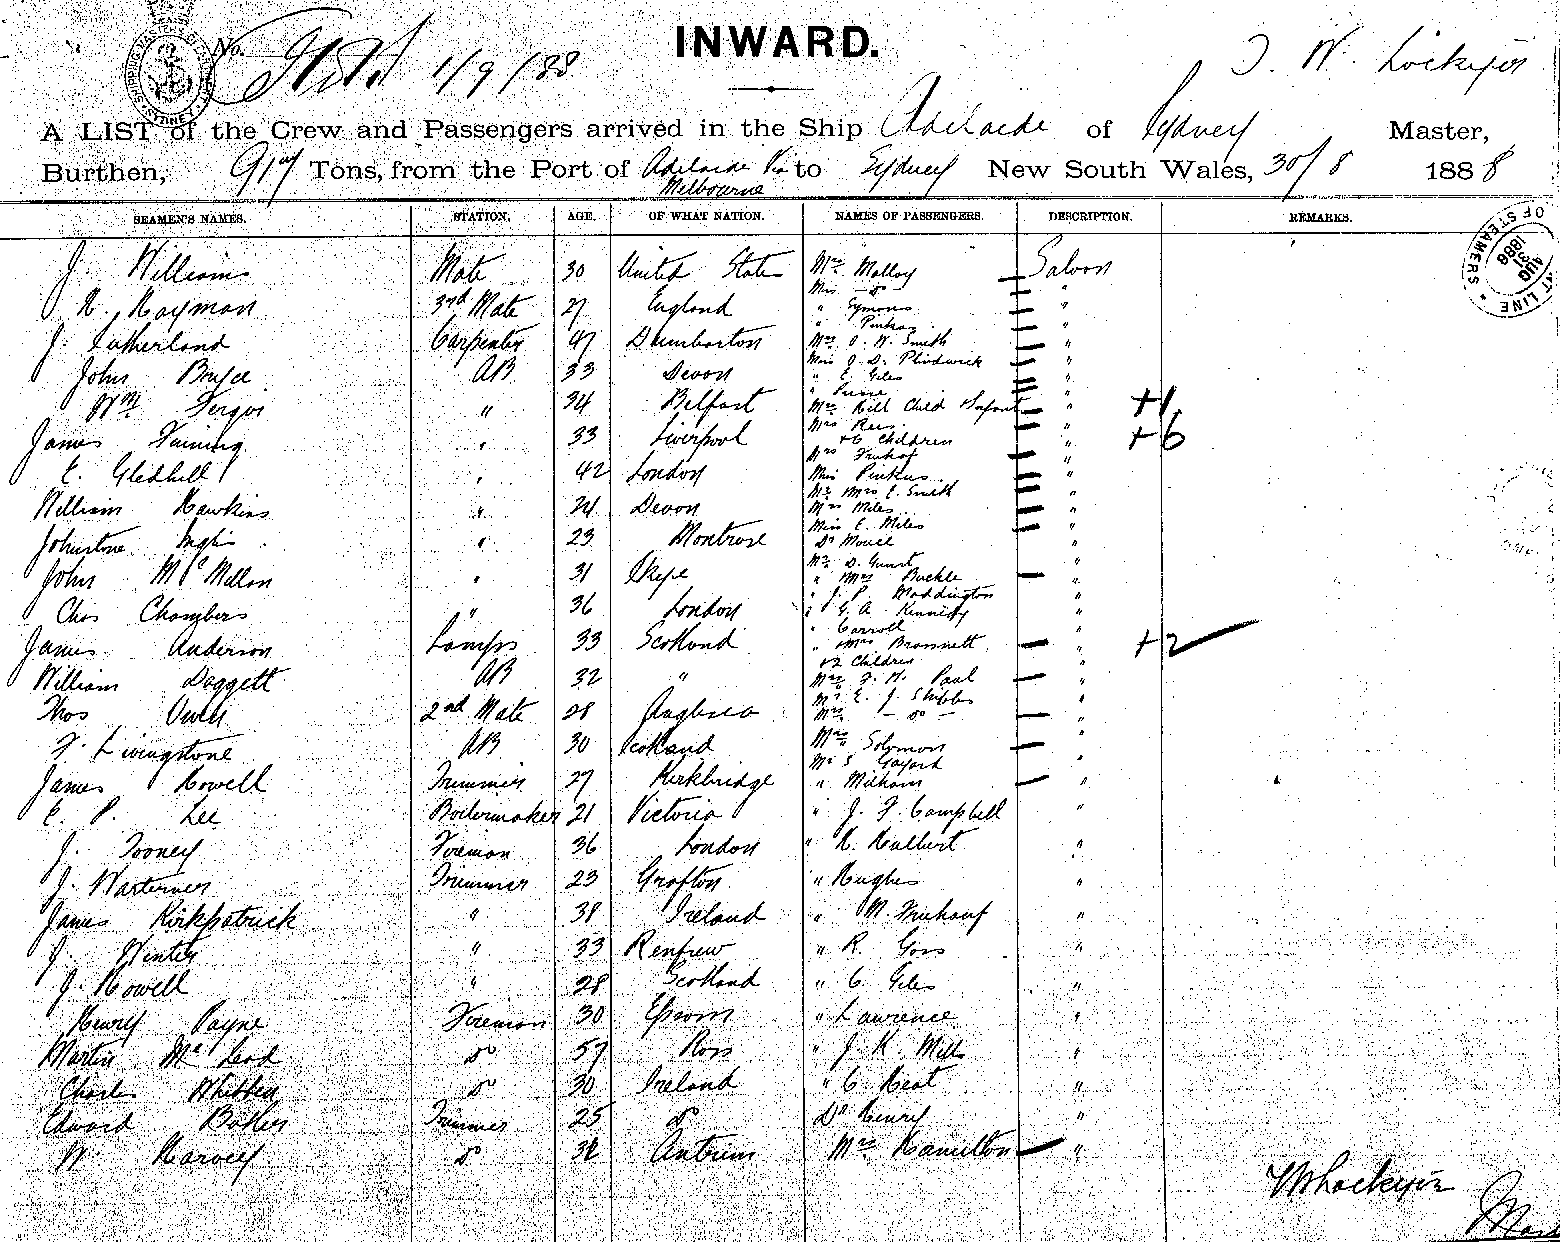 INWARD.
No. 1/9/88 J. W. Lockyer
A LIST of the Crew and Passengers arrived in the Ship Adelaide of Sydney Master,
Burthen, 917 Tons, from the Port of Adelaide Via Melbourne to Sydney New South Wales, 30/8 1888
SEAMEN'S NAMES. STATION. AGE. OF WHAT NATION. NAMES OF PASSENGERS. DESCRIPTION. REMARKS.
J. Williams Mate 30 United States Mrs. Malloy Saloon
Miss do "
3rd Mate 27 England " Symons "
" Pinkus "
J. Sutherland Carpenter 47 Dumbarton Mrs O. W. Smith "
John AB 33 Devon Miss "
" E. Giles
Wm Fergus " 34 Belfast Mrs Hill Child Infant " +1
James " 33 Liverpool Mrs Rees "
+6 Children " +6
E. Gledhill " 42 London Mrs "
Miss Pinkus "
William Hawkins " 24 Devon Mr Mrs E. Smith "
Mrs Miles "
Miss E. Miles "
Johnstone Inglis " 23 Montrose Dr "
Mr D.
John McMillan " 31 Skye " Mrs Buckle "
" J. P. Maddington "
Chas Chambers " 36 London " G. A. Kennedy "
" Carroll "
James Anderson Lamps 33 Scotland " Mrs "
+2 Children " +2
William Doggett AB 32 " Mrs F. H. Paul "
Mr E. J. Stubbs
Thos Owen 2nd Mate 28 Anglesea Mrs - do - "
F. Livingstone AB 30 Scotland Mrs Solomon "
Mr S.
James Howell Trimmer 27 Kirkbridge " "
E. P. Lee Boilermaker 21 Victoria " J. F. Campbell "
J. Tooney Fireman 36 London " H. Hulbert "
J. Trimmer 23 Grafton " Hughes "
James Kirkpatrick " 38 Ireland " M. "
J. Winter " 33 Renfrew " R. Goss "
J. Howell " 28 Scotland " C. Giles "
Henry Payne Fireman 30 Epsom " Lawrence "
Martin McLeod do 57 Ross " J. H. Mills "
Charles do 30 Ireland " C. Heat "
Edward Baker Trimmer 25 do Dr Henry "
W. Harvey do 32 Antrim Mrs Hamilton "
Lockyer
OF STEAMERS
AUG 31 1888